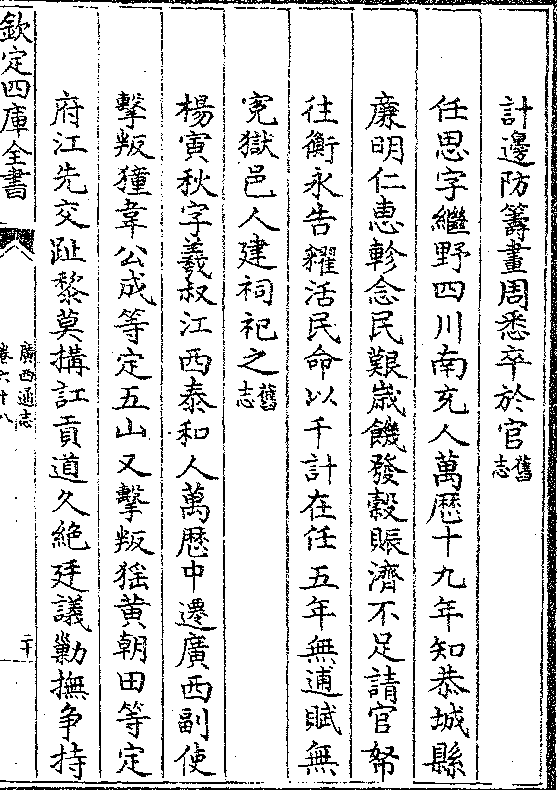 計邊防籌畫周悉卒於官舊志
任思字繼野四川南充人萬歴十九年知恭城縣
亷明仁恵軫念民艱嵗饑發穀賑濟不足請官帑
往衡永告糴活民命以千計在任五年無逋賦無
寃獄邑人建祠祀之舊志
楊寅秋字羲叔江西泰和人萬歴中遷廣西副使
擊叛獞韋公成等定五山又擊叛猺黄朝田等定
府江先交趾黎莫搆訌貢道久絶廷議勦撫争持
欽定四庫全書
廣西通志
卷六十八
二十